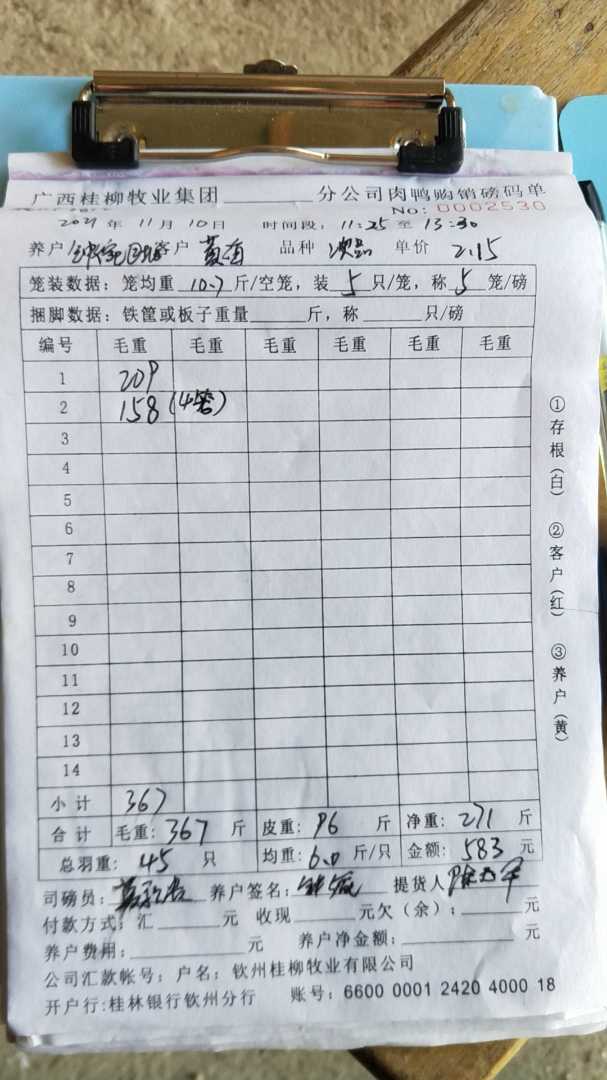 广西桂柳牧业集团 分公司肉鸭购销磅码单
No: 0002530
2021年 11月 10日 时间段: 11:25 至 13:30
养户 客户 品种 次品 单价 2.15
笼装数据: 笼均重 10.7 斤/空笼, 装 5 只/笼, 称 5 笼/磅
捆脚数据: 铁筐或板子重量 斤, 称 只/磅
编号 毛重 毛重 毛重 毛重 毛重 毛重
1 209
2 158 (4笼)
3
4
5
6
7
8
9
10
11
12
13
14
小计 367
合计 毛重: 367 斤 皮重: 96 斤 净重: 271 斤
总羽重: 45 只 均重: 6.0 斤/只 金额: 583 元
司磅员: 养户签名: 提货人
付款方式: 汇 元 收现 元欠(余): 元
养户费用: 元 养户净金额: 元
公司汇款帐号: 户名: 钦州桂柳牧业有限公司
开户行:桂林银行钦州分行 账号: 6600 0001 2420 4000 18
①存根(白) ②客户(红) ③养户(黄)